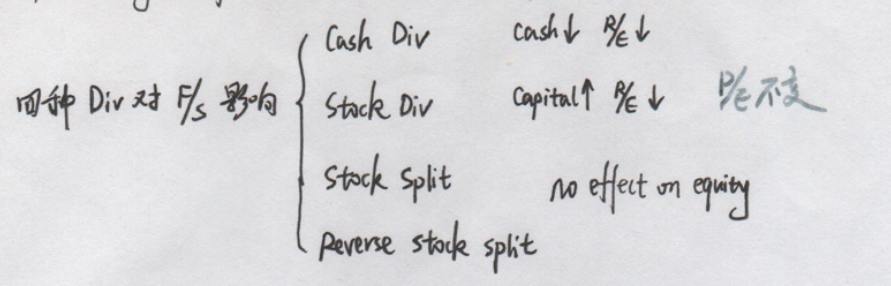 Cash Div cash↓ R/E↓
四种 Div 对 F/S 影响 Stock Div Capital↑ R/E↓ P/E不变
Stock Split no effect on equity
Reverse stock split